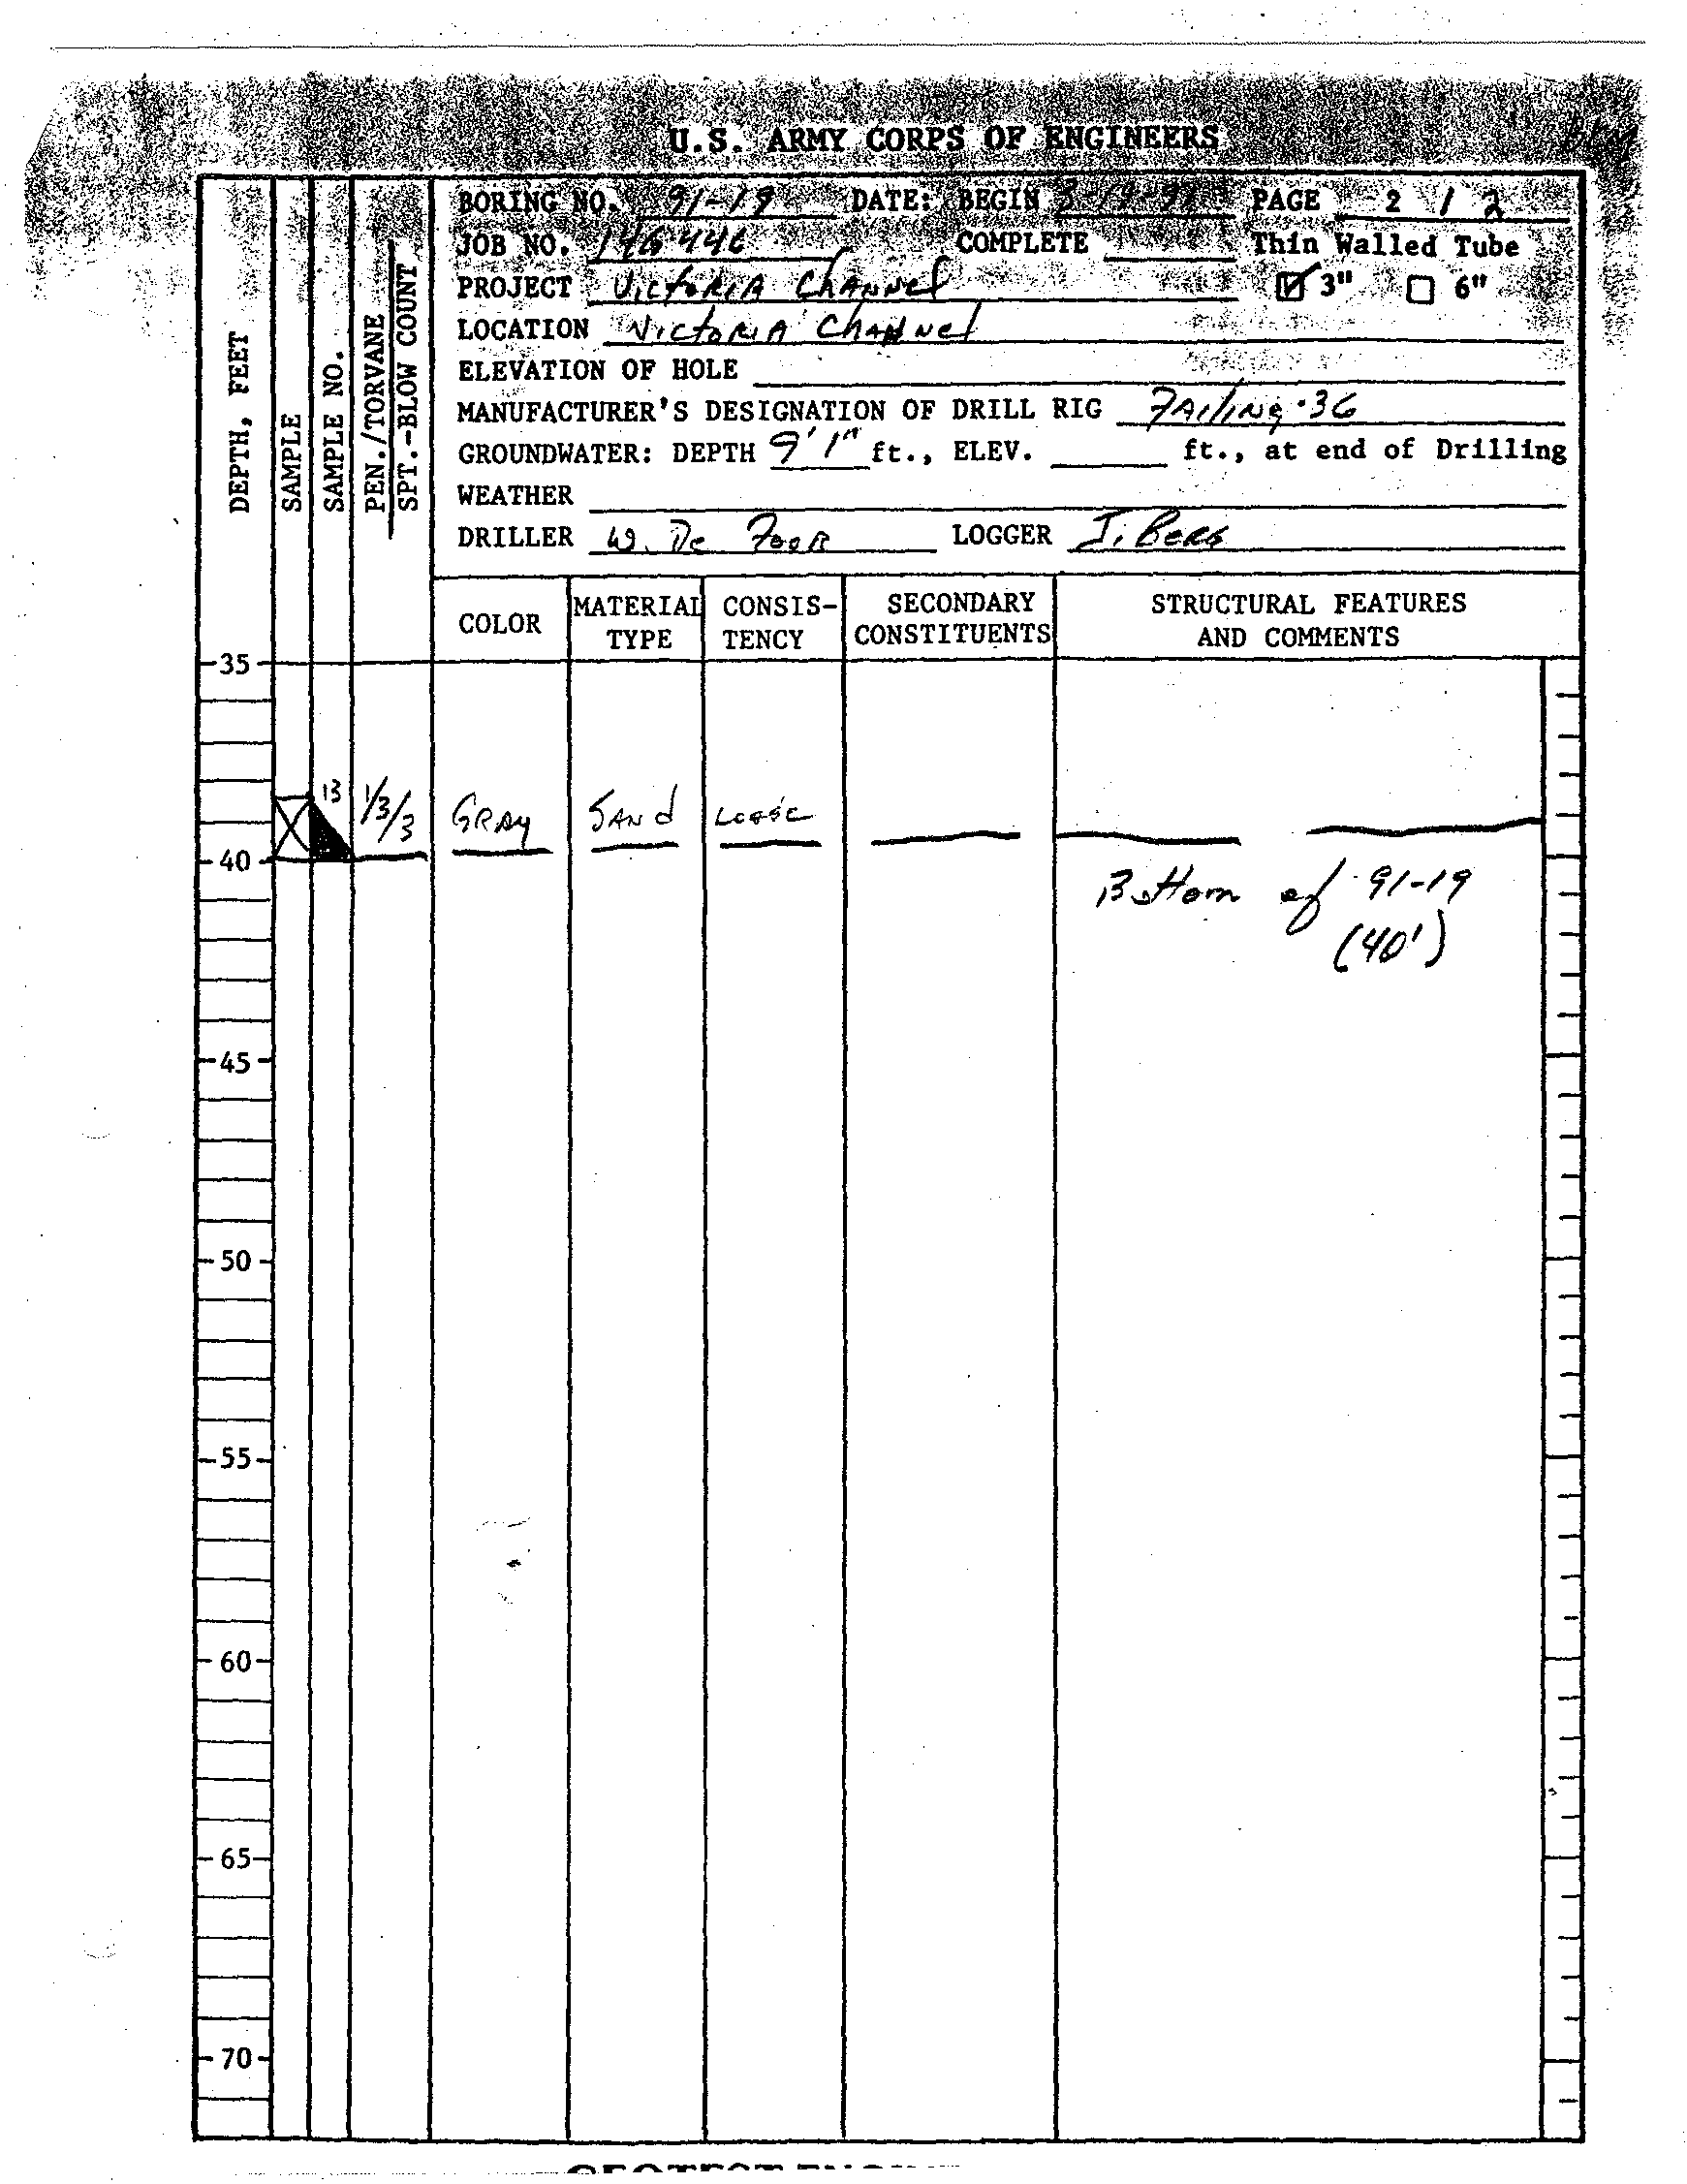 U.S. ARMY CORPS OF ENGINEERS
BORING NO. 91-19 DATE: BEGIN 3-19-91 PAGE 2 / 2
JOB NO. 146446 COMPLETE Thin Walled Tube
PROJECT Victoria Channel 3" 6"
LOCATION Victoria Channel
ELEVATION OF HOLE
MANUFACTURER'S DESIGNATION OF DRILL RIG Failing 36
GROUNDWATER: DEPTH 9'1" ft., ELEV. ft., at end of Drilling
WEATHER
DRILLER W. De Foor LOGGER J. Berg
DEPTH, FEET
SAMPLE
SAMPLE NO.
PEN./TORVANE
SPT.-BLOW COUNT
COLOR
MATERIAL TYPE
CONSIS-TENCY
SECONDARY CONSTITUENTS
STRUCTURAL FEATURES AND COMMENTS
35
13 1/3/3 GRAY SAND LOOSE
40
Bottom of 91-19
(40')
45
50
55
60
65
70